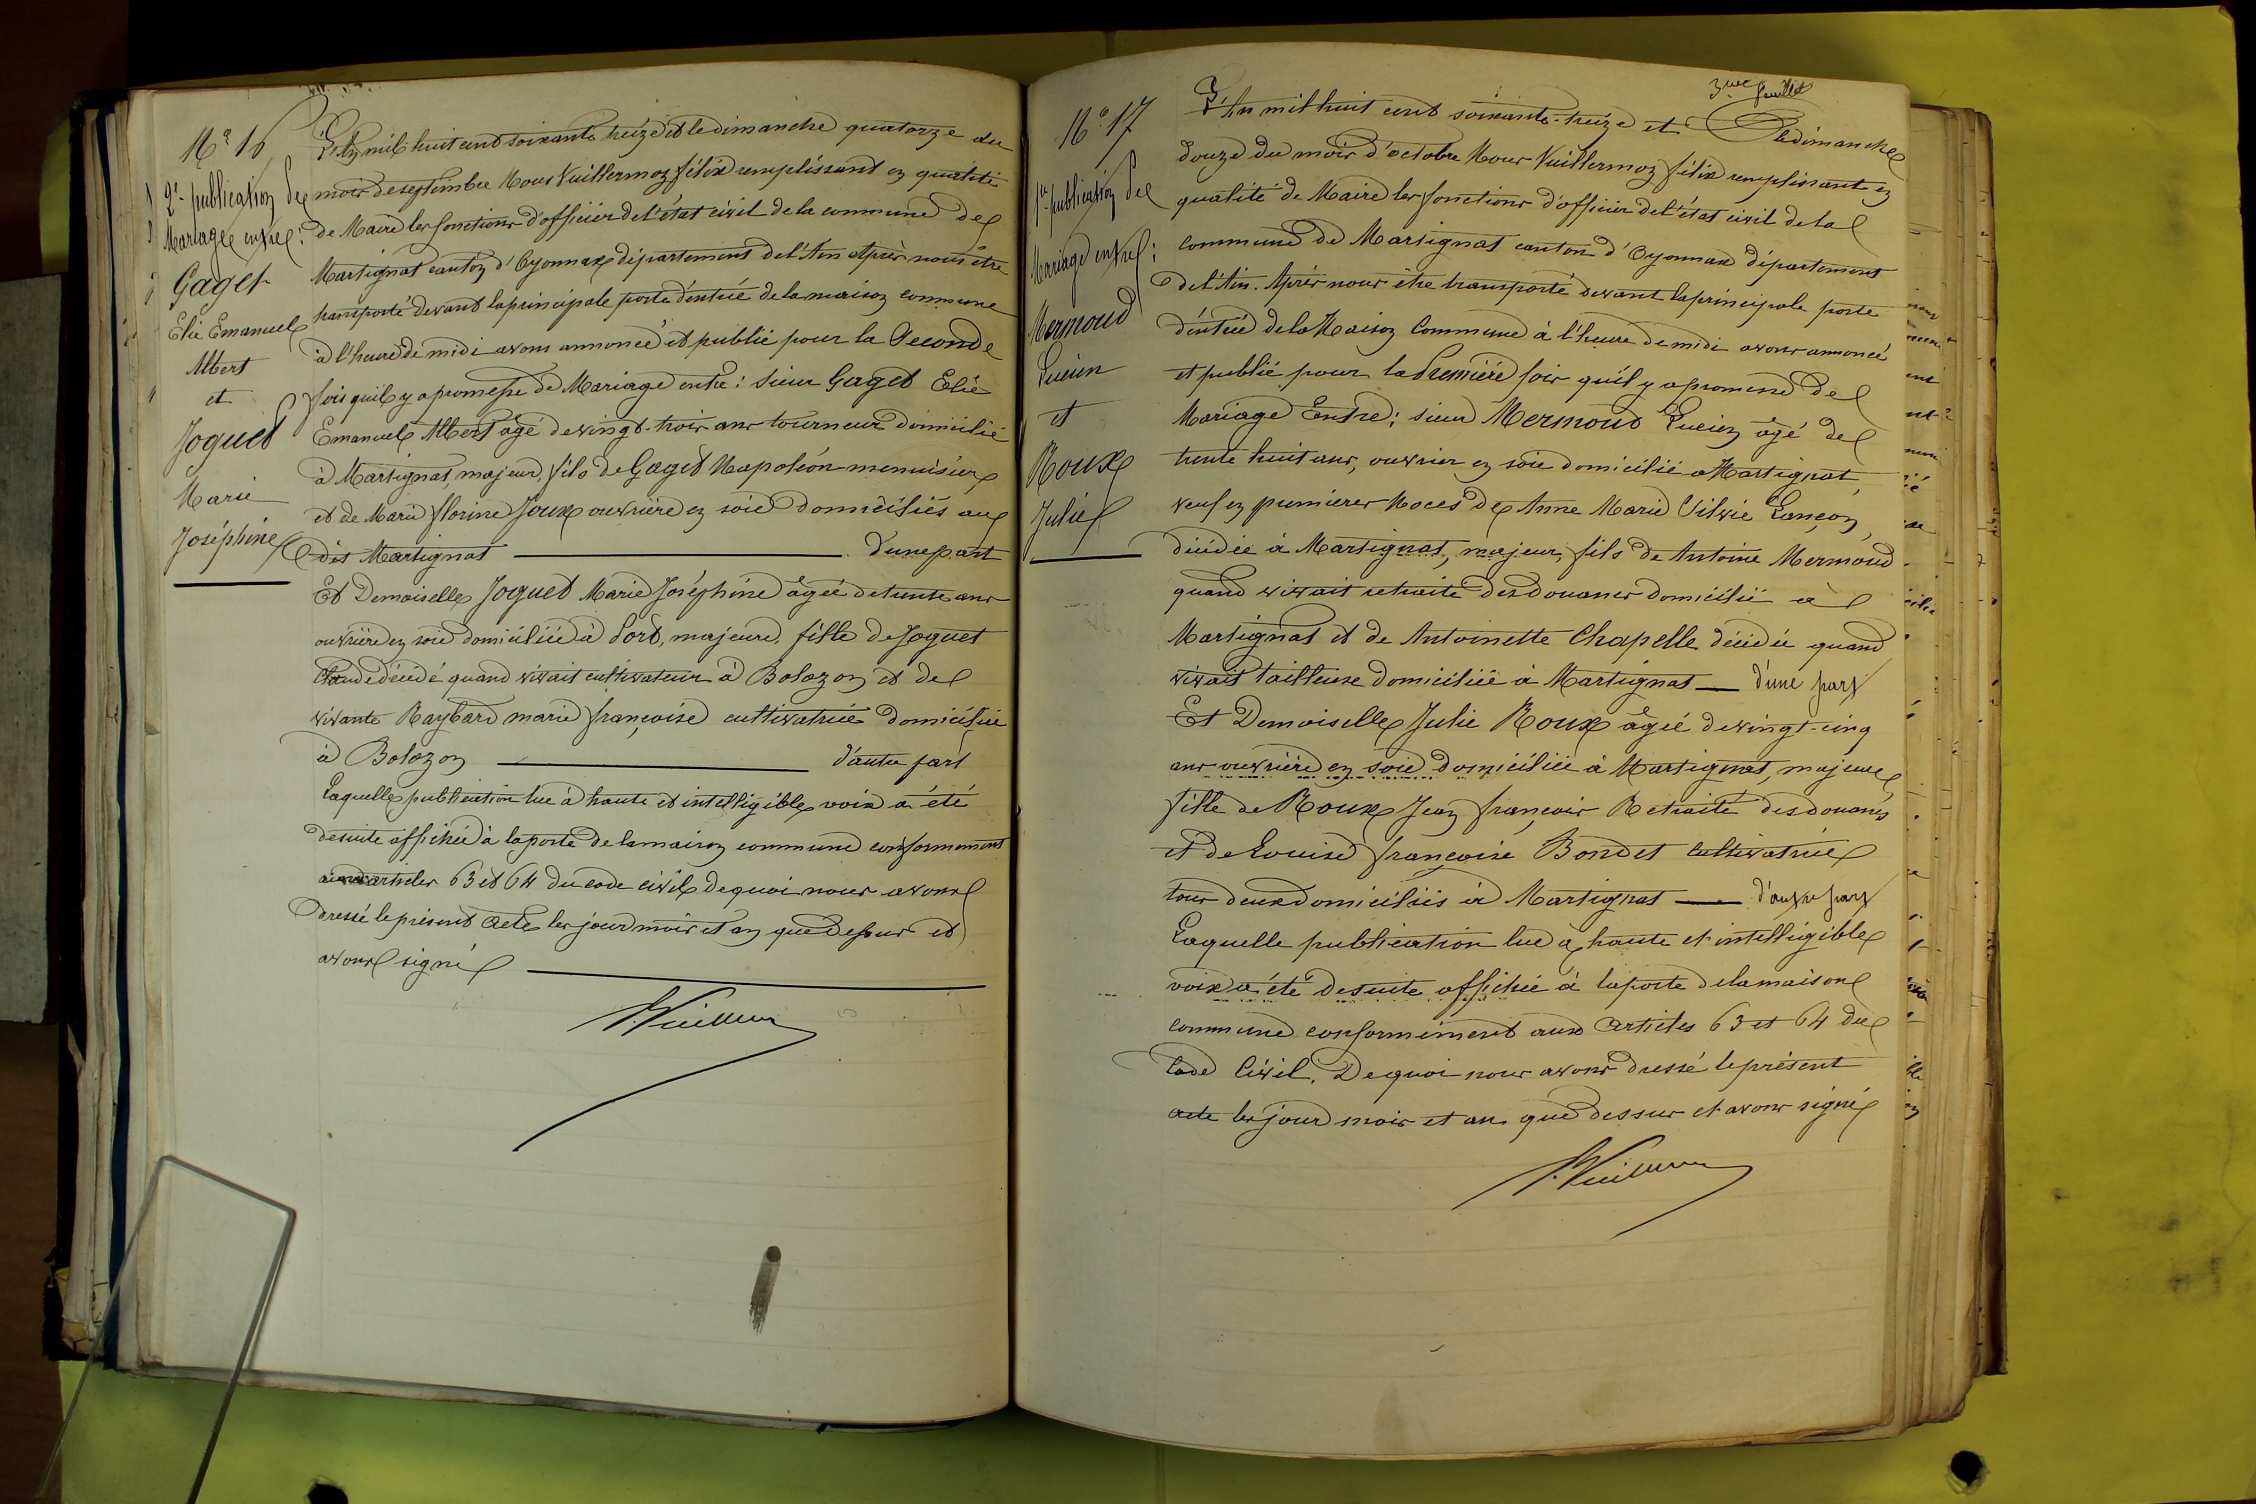 N° 16
2e publication de
Mariage entre :
Gaget
Elie Emanuel
Albert
et
Joguet
Marie
Joséphine
L'an mil huit cent soixante treize et le dimanche quatorze du
mois de septembre Nous Vuillermoz félix remplissant en qualité
de Maire les fonctions d'officier de l'état civil de la commune de
Martignat canton d'Oyonnax département de l'Ain Après nous être
transporté devant la principale porte d'entrée de la maison commune
à l'heure de midi avons annoncé et publié pour la Seconde
fois quil y a promesse de Mariage entre : sieur Gaget Elie
Emanuel Albert agé de vingt-trois ans tourneur domicilié
à Martignat, majeur, fils de Gaget Napoléon menuisier
et de Marie florine Joux ouvrière en soie domiciliés au
dès Martignat d'une part
Et Demoiselle Joguet Marie Joséphine âgée de trente ans
ouvrière en soie domiciliée à Port, majeure, fille de Joguet
Claude décédé quand vivait cultivateur à Bolozon et de
vivante Raybard marie françoise cultivatrice domiciliée
à Bolozon d'autre part
Laquelle publication lue à haute et intelligible voix a été
desuite affichée à la porte de la maison commune conformement
aux articles 63 et 64 du code civil De quoi nous avons
dressé le présent acte les jour mois et an que dessus et
avons signé
F. Vuillermoz
3me feuillet
N° 17
1re publication de
Mariage entre :
Mermoud
Lucien
et
Roux
Julie
L'An mil huit cent soixante-treize et le dimanche
douze du mois d'octobre Nous Vuillermoz félix remplissant en
qualité de Maire les fonctions d'officier de l'état civil de la
commune de Martignat canton d'Oyonnax département
de l'Ain. Après nous être transporté devant la principale porte
d'entrée de la Maison Commune à l'heure de midi avons annoncé
et publié pour la Première fois qu'il y a promesse de
Mariage Entre : sieur Mermoud Lucien âgé de
trente huit ans, ouvrier en soie domicilié a Martignat,
veuf en premieres Noces de Anne Marie Silvie Lançon,
décédée à Martignat, majeur, fils de Antoine Mermoud
quand vivait retraité des douanes domicilié à
Martignat et de Antoinette Chapelle décédée quand
vivait tailleuse domiciliée à Martignat d'une part
Et Demoiselle Julie Roux âgée de vingt-cinq
ans ouvrière en soie domiciliée à Martignat, majeure,
fille de Roux Jean françois Retraité des douanes
et de Louise françoise Bondet cultivatrice
tous deux domiciliés à Martignat d'autre part
Laquelle publication lue à haute et intelligible
voix a été desuite affichée à la porte de la maison
commune conformément aux articles 63 et 64 du
Code Civil. De quoi nous avons dressé le présent
acte les jour mois et an que dessus et avons signé
F. Vuillermoz